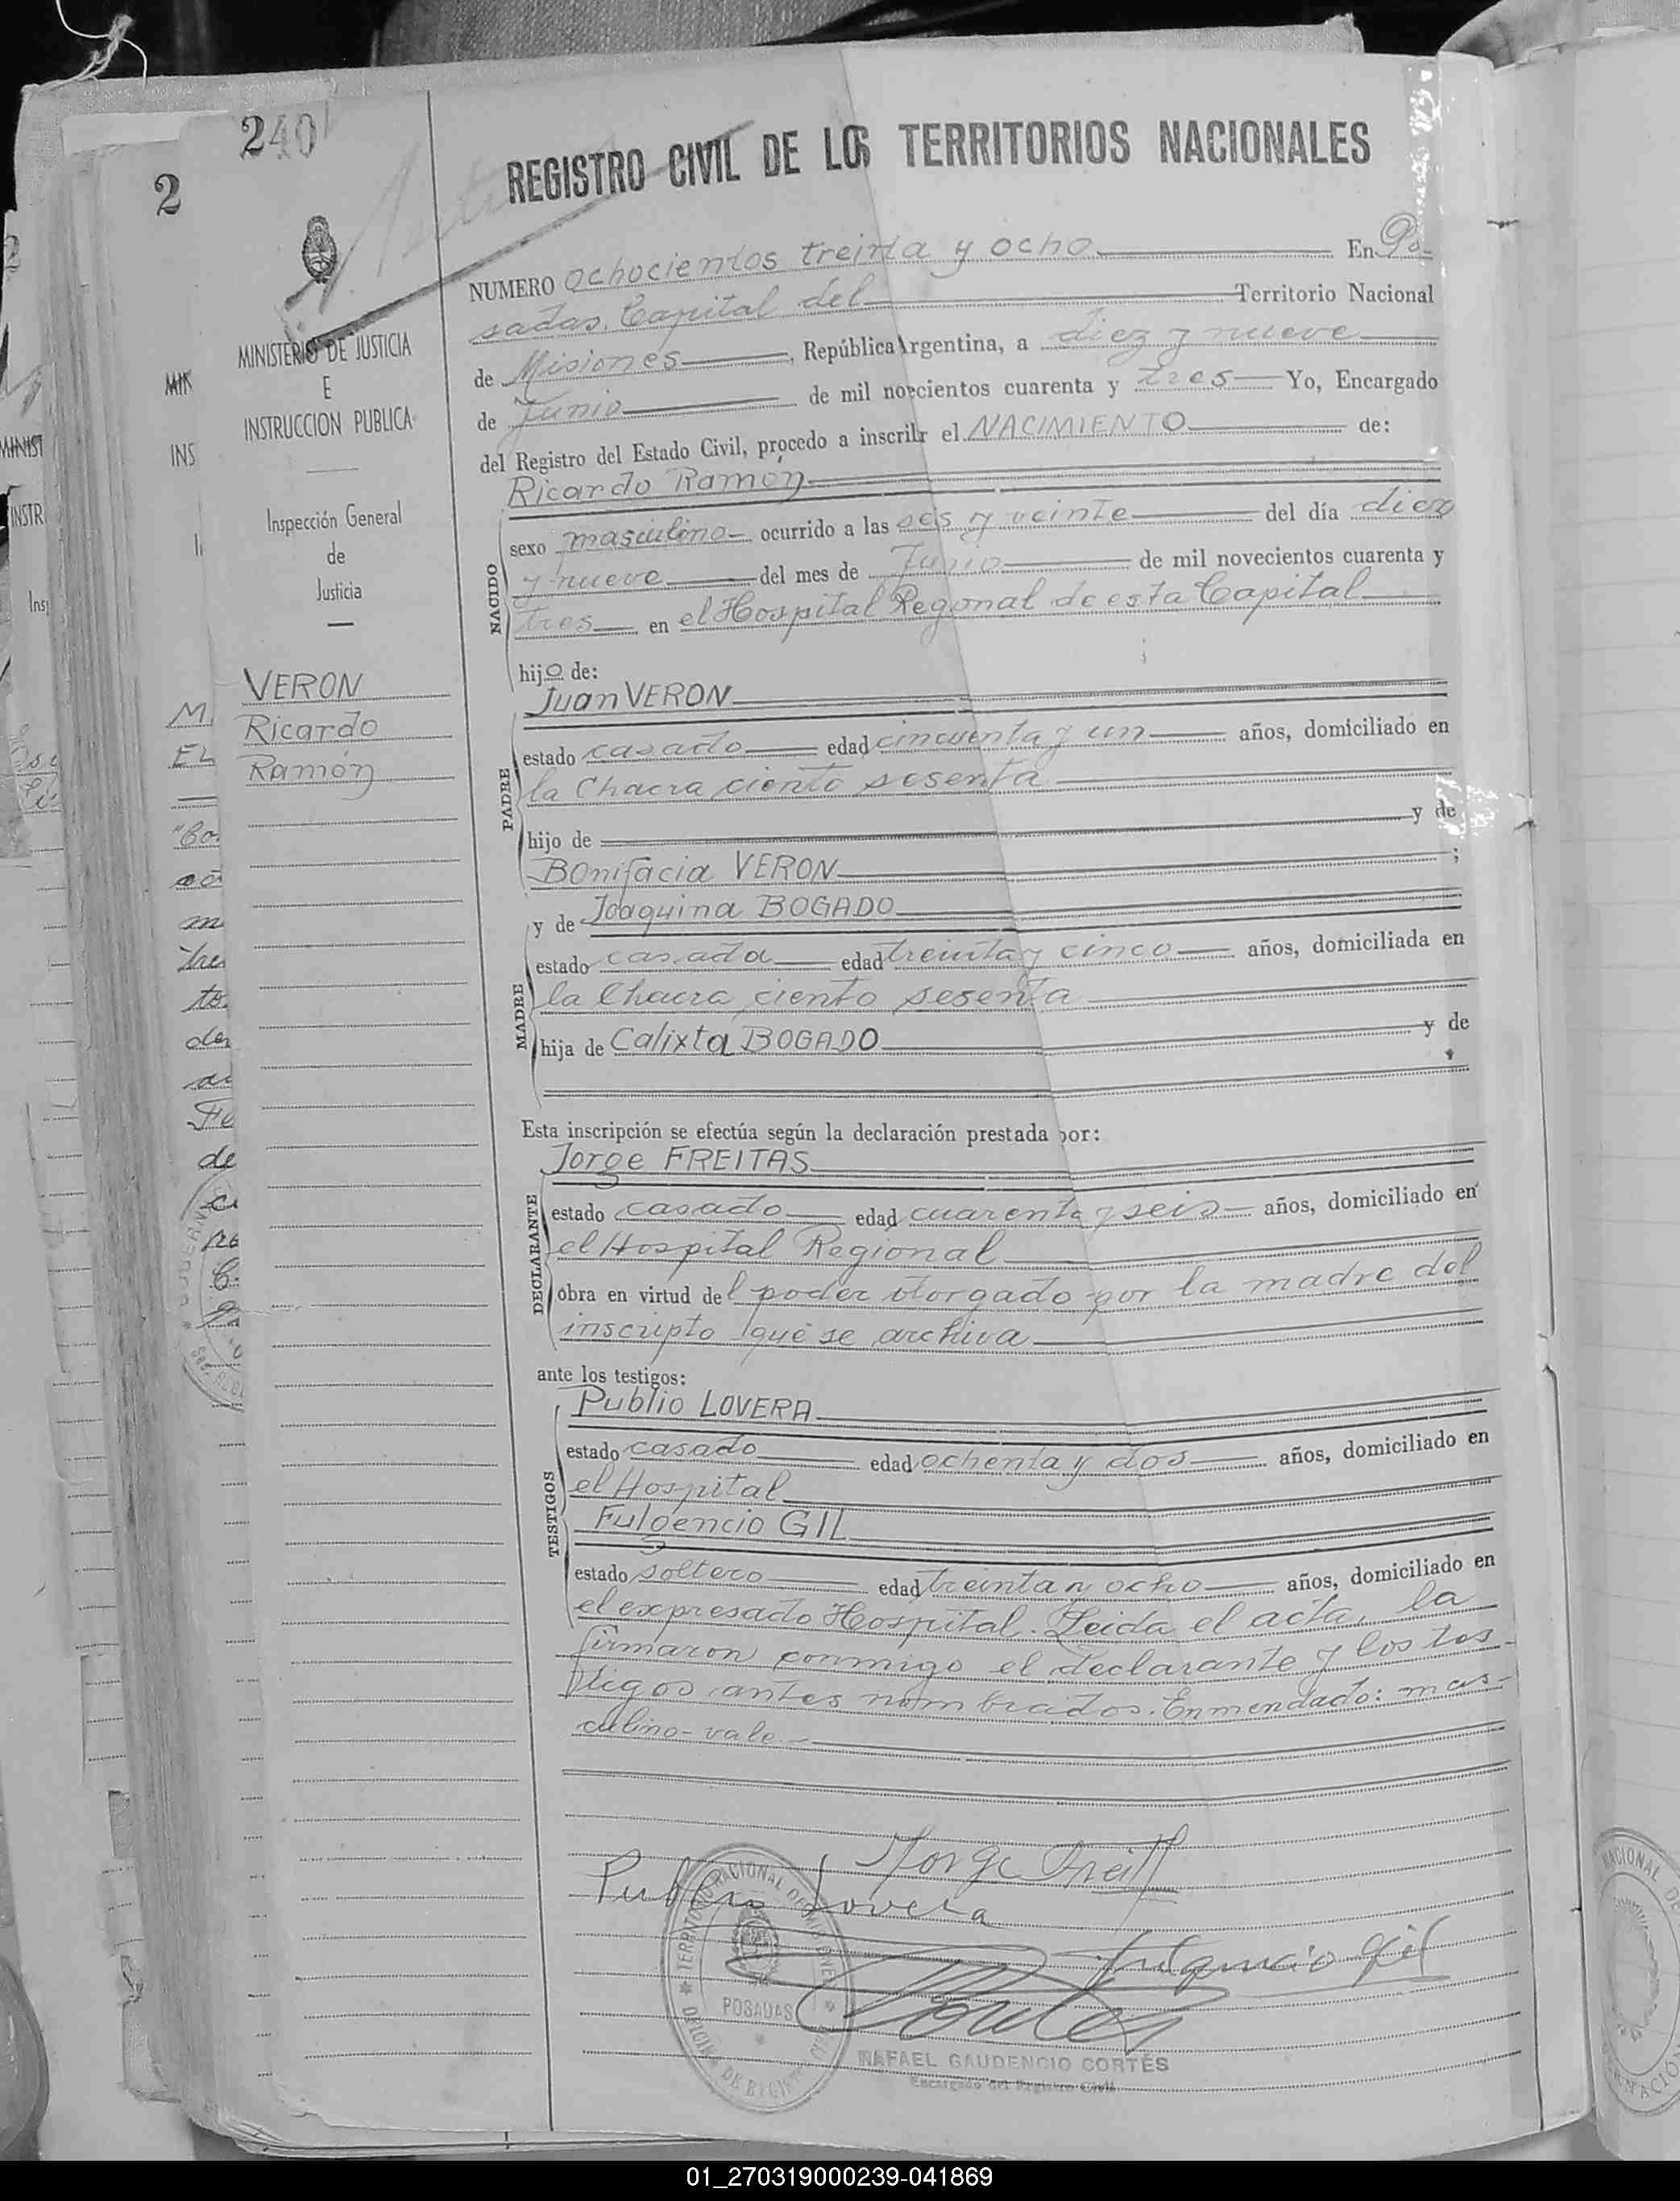 240
2
REGISTRO CIVIL DE LOS TERRITORIOS NACIONALES
MINISTERIO DE JUSTICIA
E
INSTRUCCION PUBLICA
Inspección General
de
Justicia
VERON
Ricardo
Ramón
NUMERO ochocientos treinta y ocho En Po-
sadas, Capital del Territorio Nacional
de Misiones, República Argentina, a diez y nueve
de Junio de mil novecientos cuarenta y tres Yo, Encargado
del Registro del Estado Civil, procedo a inscribir el NACIMIENTO de:
Ricardo Ramón
NACIDO
sexo masculino ocurrido a las seis y veinte del día diez
y nueve del mes de Junio de mil novecientos cuarenta y
tres en el Hospital Regional de esta Capital
hijo de:
Juan VERON
PADRE
estado casado edad cincuenta y un años, domiciliado en
la Chacra ciento sesenta
hijo de y de
Bonifacia VERON ;
y de Joaquina BOGADO
MADRE
estado casada edad treinta y cinco años, domiciliada en
la Chacra ciento sesenta
hija de Calixta BOGADO y de
Esta inscripción se efectúa según la declaración prestada por:
Jorge FREITAS
DECLARANTE
estado casado edad cuarenta y seis años, domiciliado en
el Hospital Regional
obra en virtud del poder otorgado por la madre del
inscripto que se archiva
ante los testigos:
Publio LOVERA
TESTIGOS
estado casado edad ochenta y dos años, domiciliado en
el Hospital
Fulgencio GIL
estado soltero edad treinta y ocho años, domiciliado en
el expresado Hospital. Leida el acta, la
firmaron conmigo el declarante y los tes-
tigos antes nombrados. Enmendado: mas-
culino-vale.-
Jorge
Publio Lovera
Fulgencio Gil
Cortés
POSADAS
RAFAEL GAUDENCIO CORTÉS
Encargado del Registro Civil
01_270319000239-041869